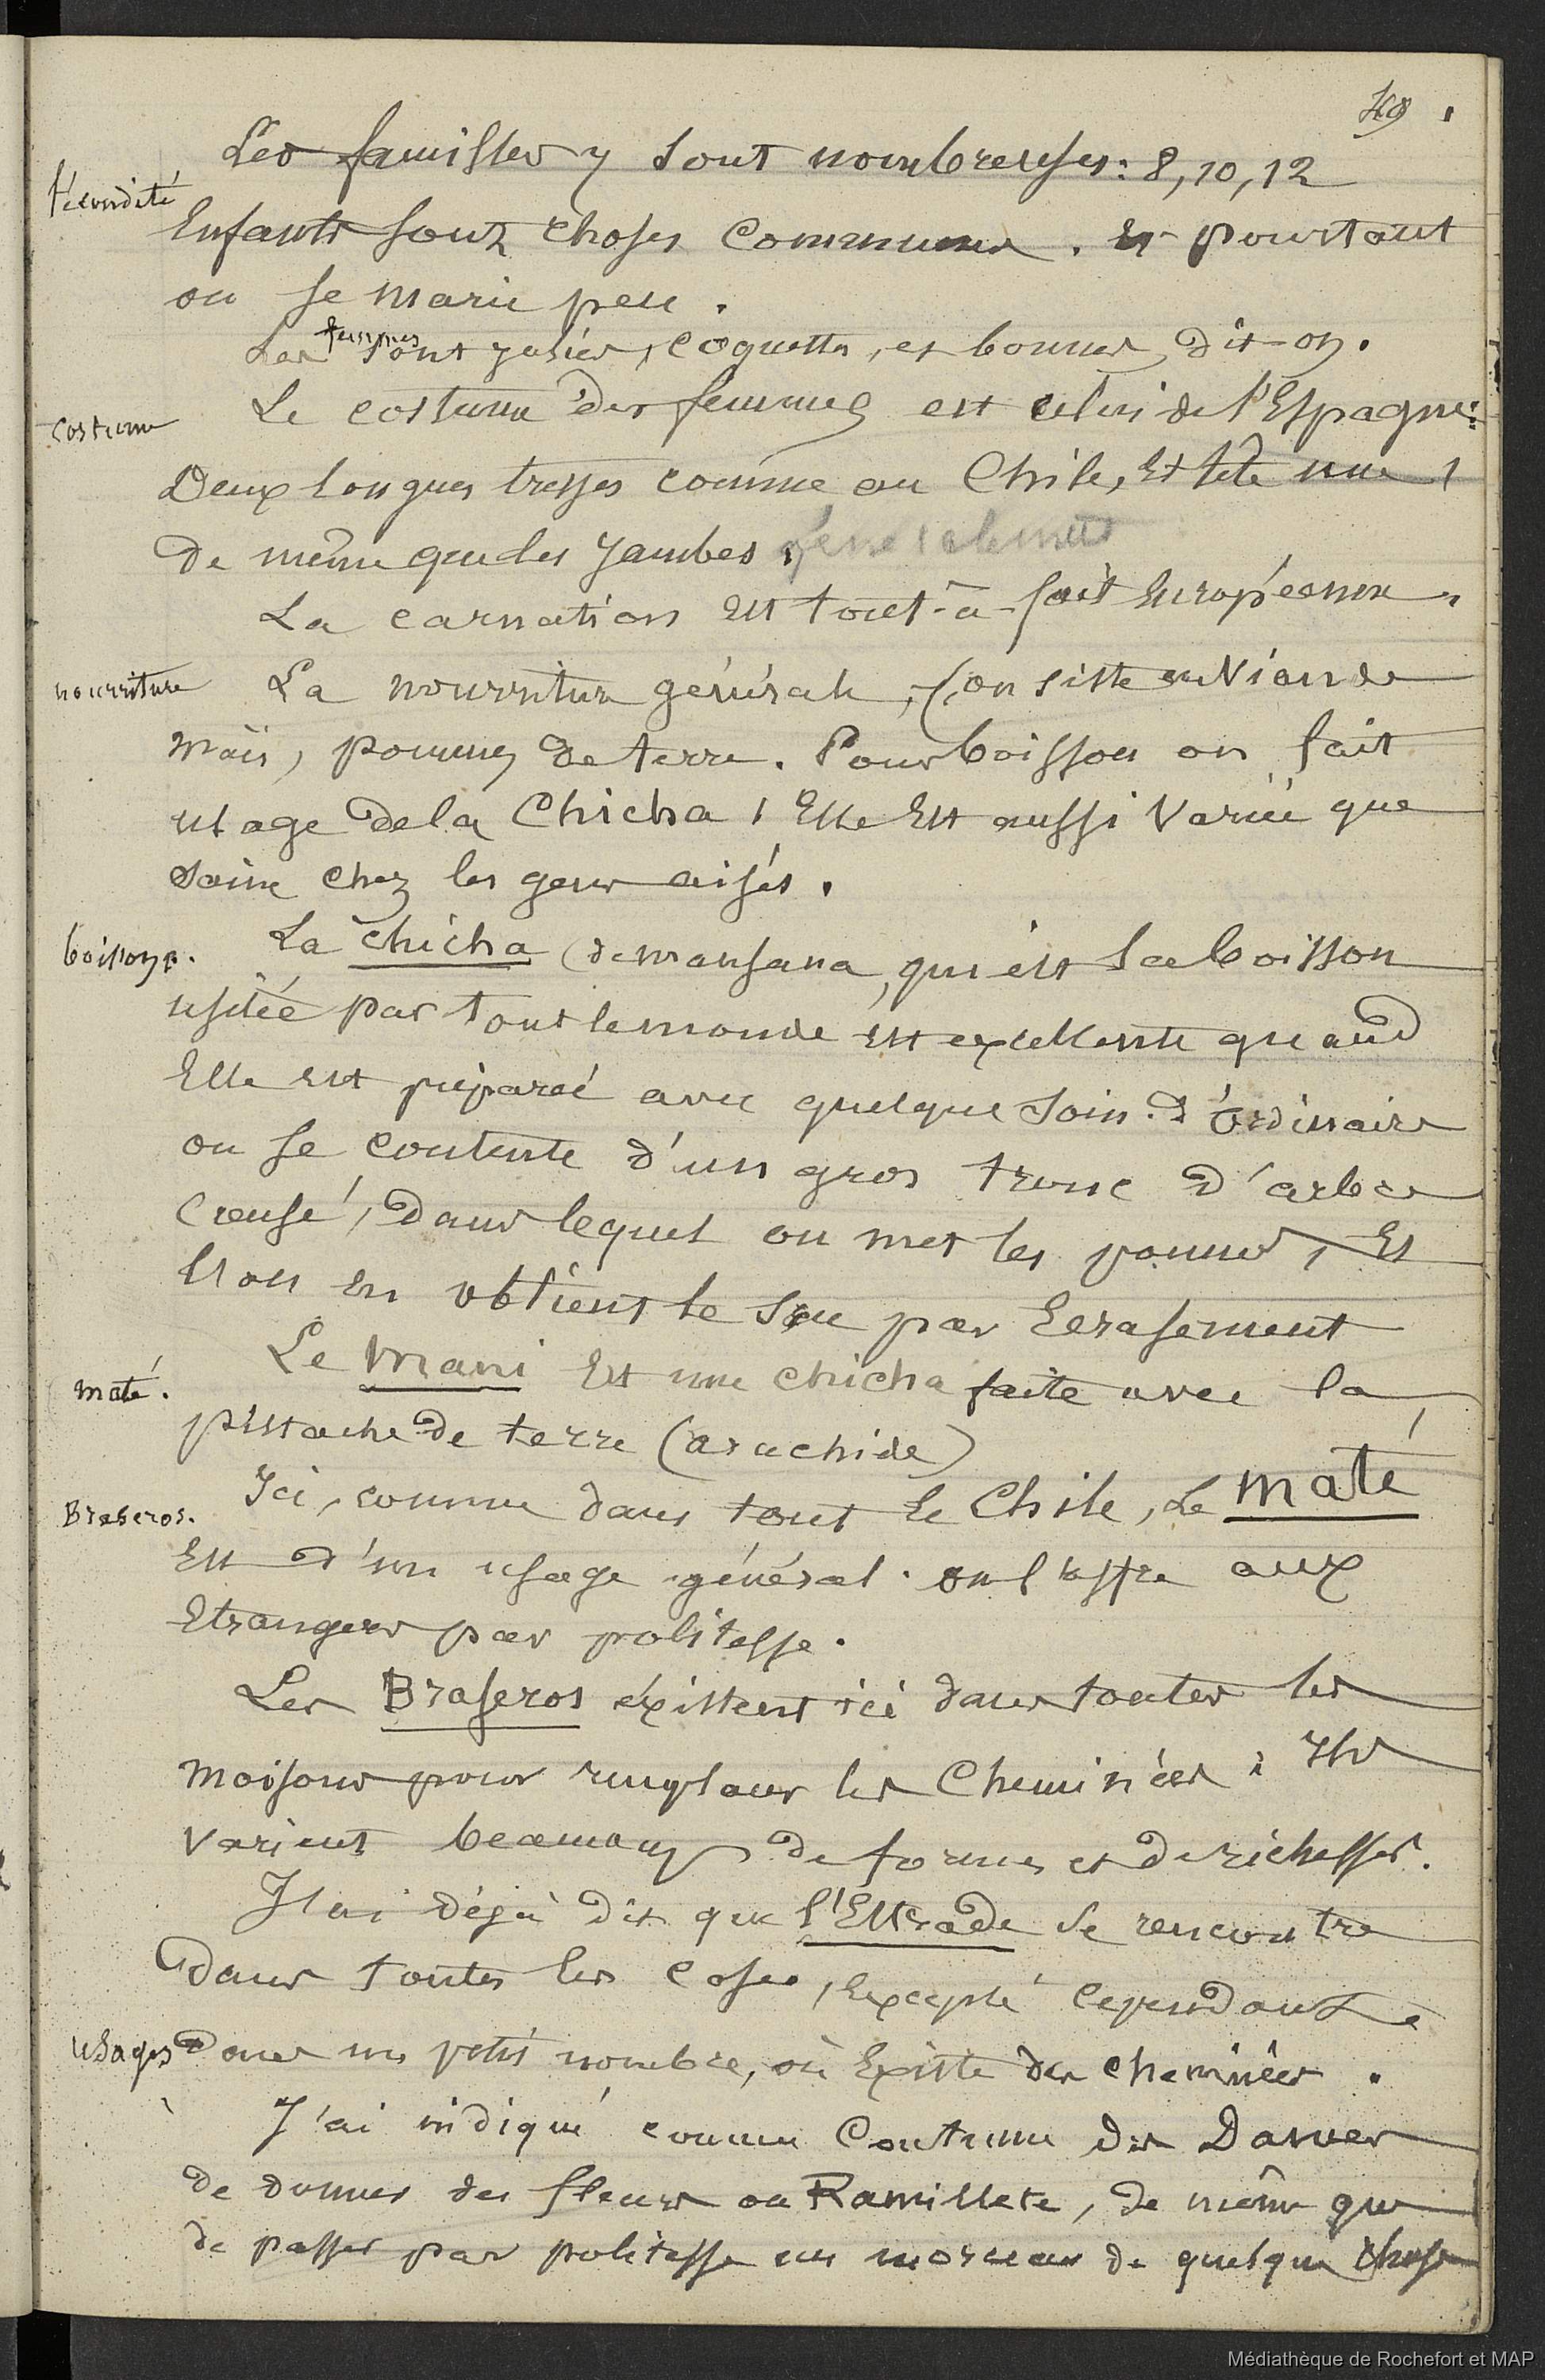 49
Les familles y sont nombreuses: 8, 10, 12
fécondité
Enfants sont choses communes. Et pourtant
on se marie peu.
Les femmes sont jolies, coquettes, et bonnes, dit-on.
Le costume des femmes est celui de l'Espagne:
costume
Deux longues tresses comme au Chile, Et tête nue,
de même que les Jambes, généralement
La carnation Est tout-à-fait Européenne.
nourriture
La nourriture générale, Consiste en Viande
Maïs, pommes de terre. Pour boisson on fait
usage de la Chicha, Elle Est aussi Variée que
saine chez les gens aisés.
boissons.
La chicha (de mansana, qui est la boisson
usitée par tout le monde Est excellente quand
Elle est préparée avec quelque soin. D'ordinaire
on se contente d'un gros tronc d'arbre
Creusé, dans lequel on met les pommes, Et
l'on en obtient le suc par Ecrasement
Le Mani Est une chicha faite avec la
maté.
pistache de terre (arachide)
Ici, comme dans tout le Chile, Le maté
Braseros.
Est d'un usage général. on l'offre aux
Etrangers par politesse.
Les Braseros existent ici dans toutes les
maisons pour remplacer les Cheminées; Ils
Varient beaucoup de formes et de richesses.
J'ai déjà dit que l'Estrade se rencontre
dans toutes les Casas, Excepté cependant
usages
dans un petit nombre, où Existe des cheminées.
J'ai indiqué comme Coutume des Dames
de donner des fleurs ou Ramillete, de même que
de passer par politesse un morceau de quelque chose
Médiathèque de Rochefort et MAP